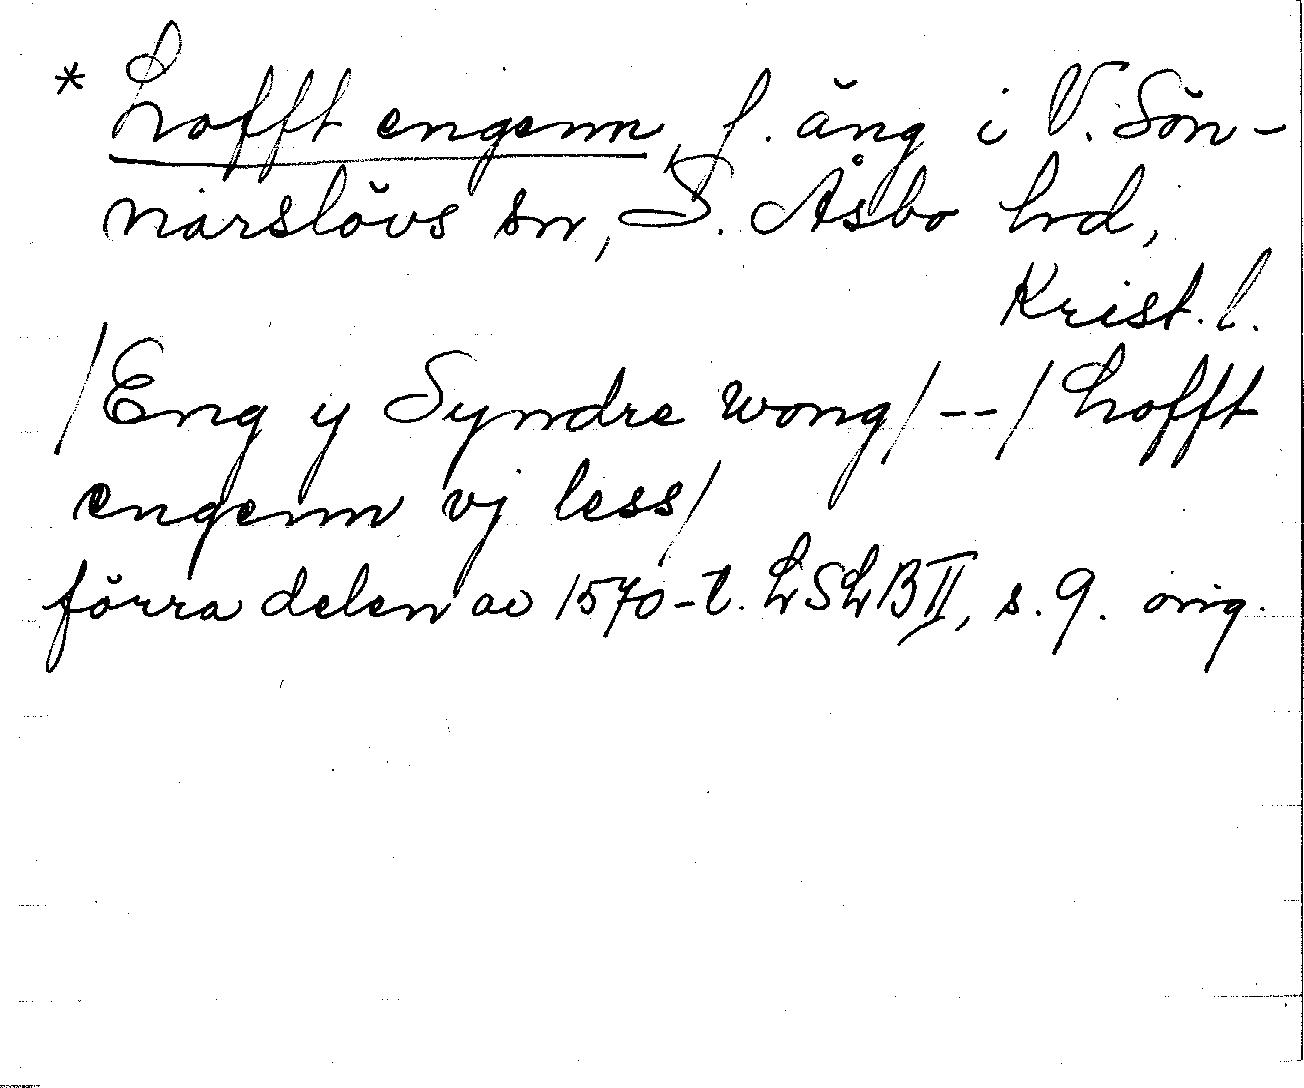 * Lofft engenn, f. äng i V. Sön-
narslövs sn, S. Åsbo hd,
Krist. l.
/Eng y Syndre wong/--/Lofft
engenn vj less/
förra delen av 1570-t. LSLB II, s. 9. orig.